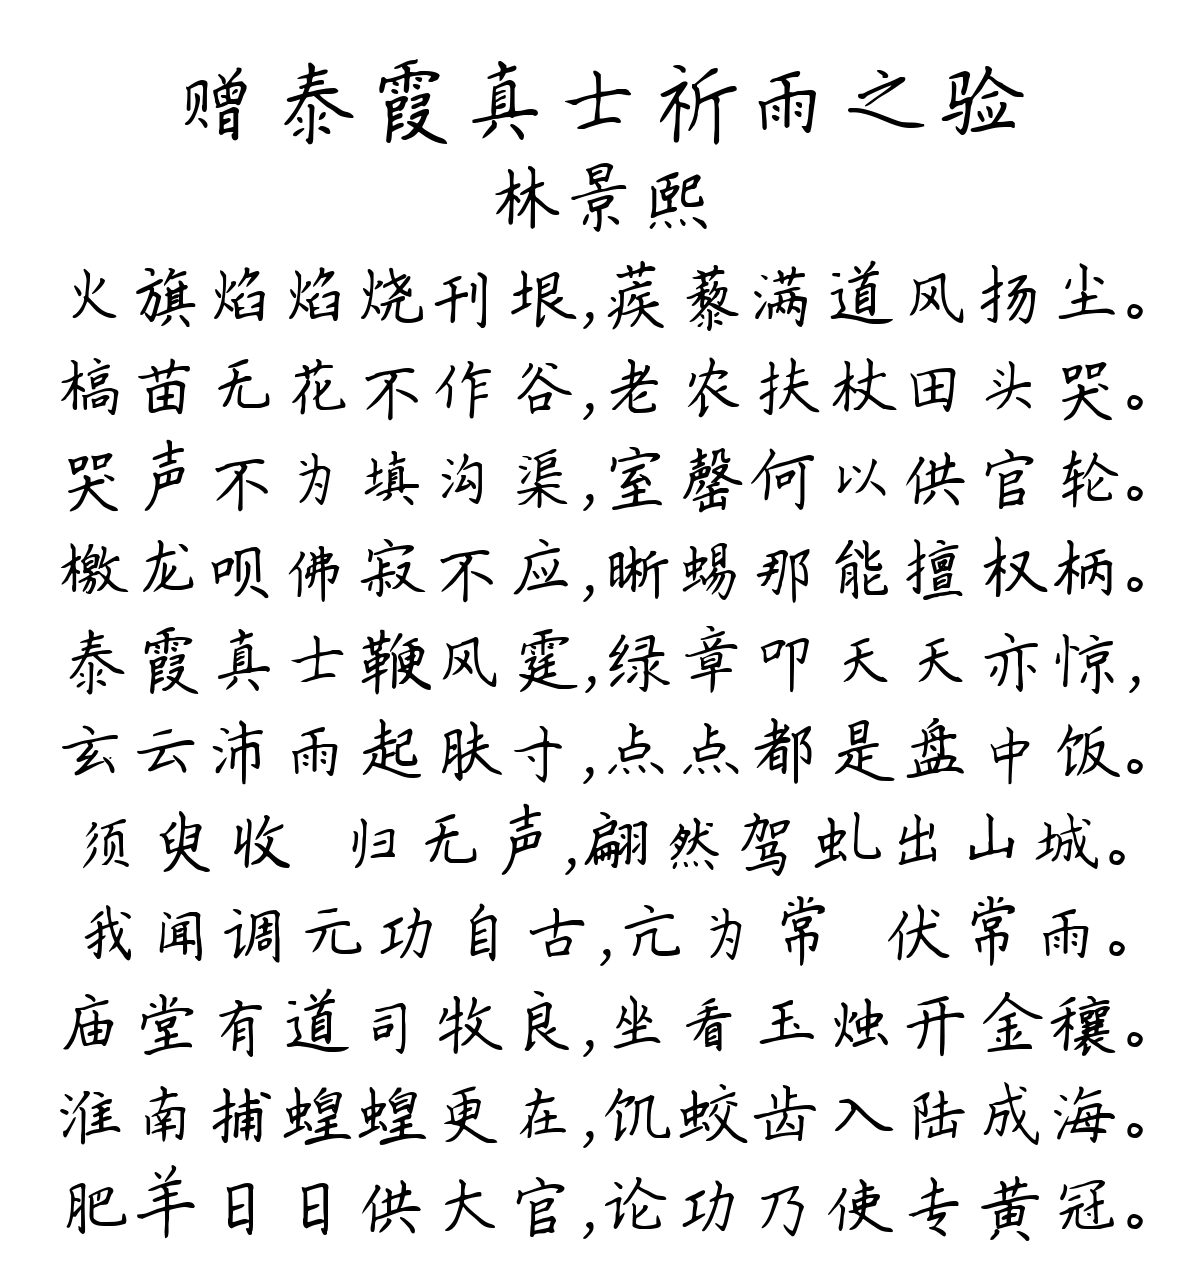 赠泰霞真士祈雨之验
林景熙
火旗焰焰烧刊垠,蒺藜满道风扬尘。
槁苗无花不作谷,老农扶杖田头哭。
哭声不为填沟渠,室罄何以供官轮。
檄龙呗佛寂不应,晰蜴那能擅权柄。
泰霞真士鞭风霆,绿章叩天天亦惊,
玄云沛雨起肤寸,点点都是盘中饭。
须臾收 归无声,翩然驾虬出山城。
我闻调元功自古,亢为常 伏常雨。
庙堂有道司牧良,坐看玉烛开金穰。
淮南捕蝗蝗更在,饥蛟齿入陆成海。
肥羊日日供大官,论功乃使专黄冠。